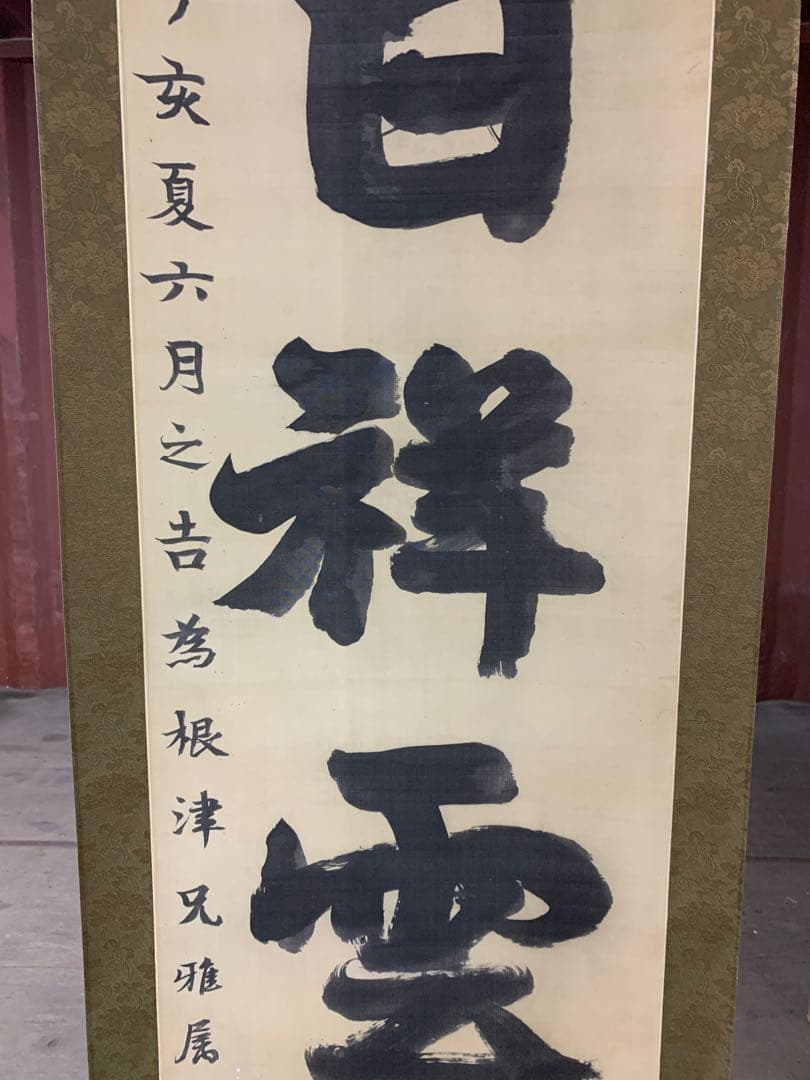 日祥雲
丁亥夏六月之吉為根津兄雅属